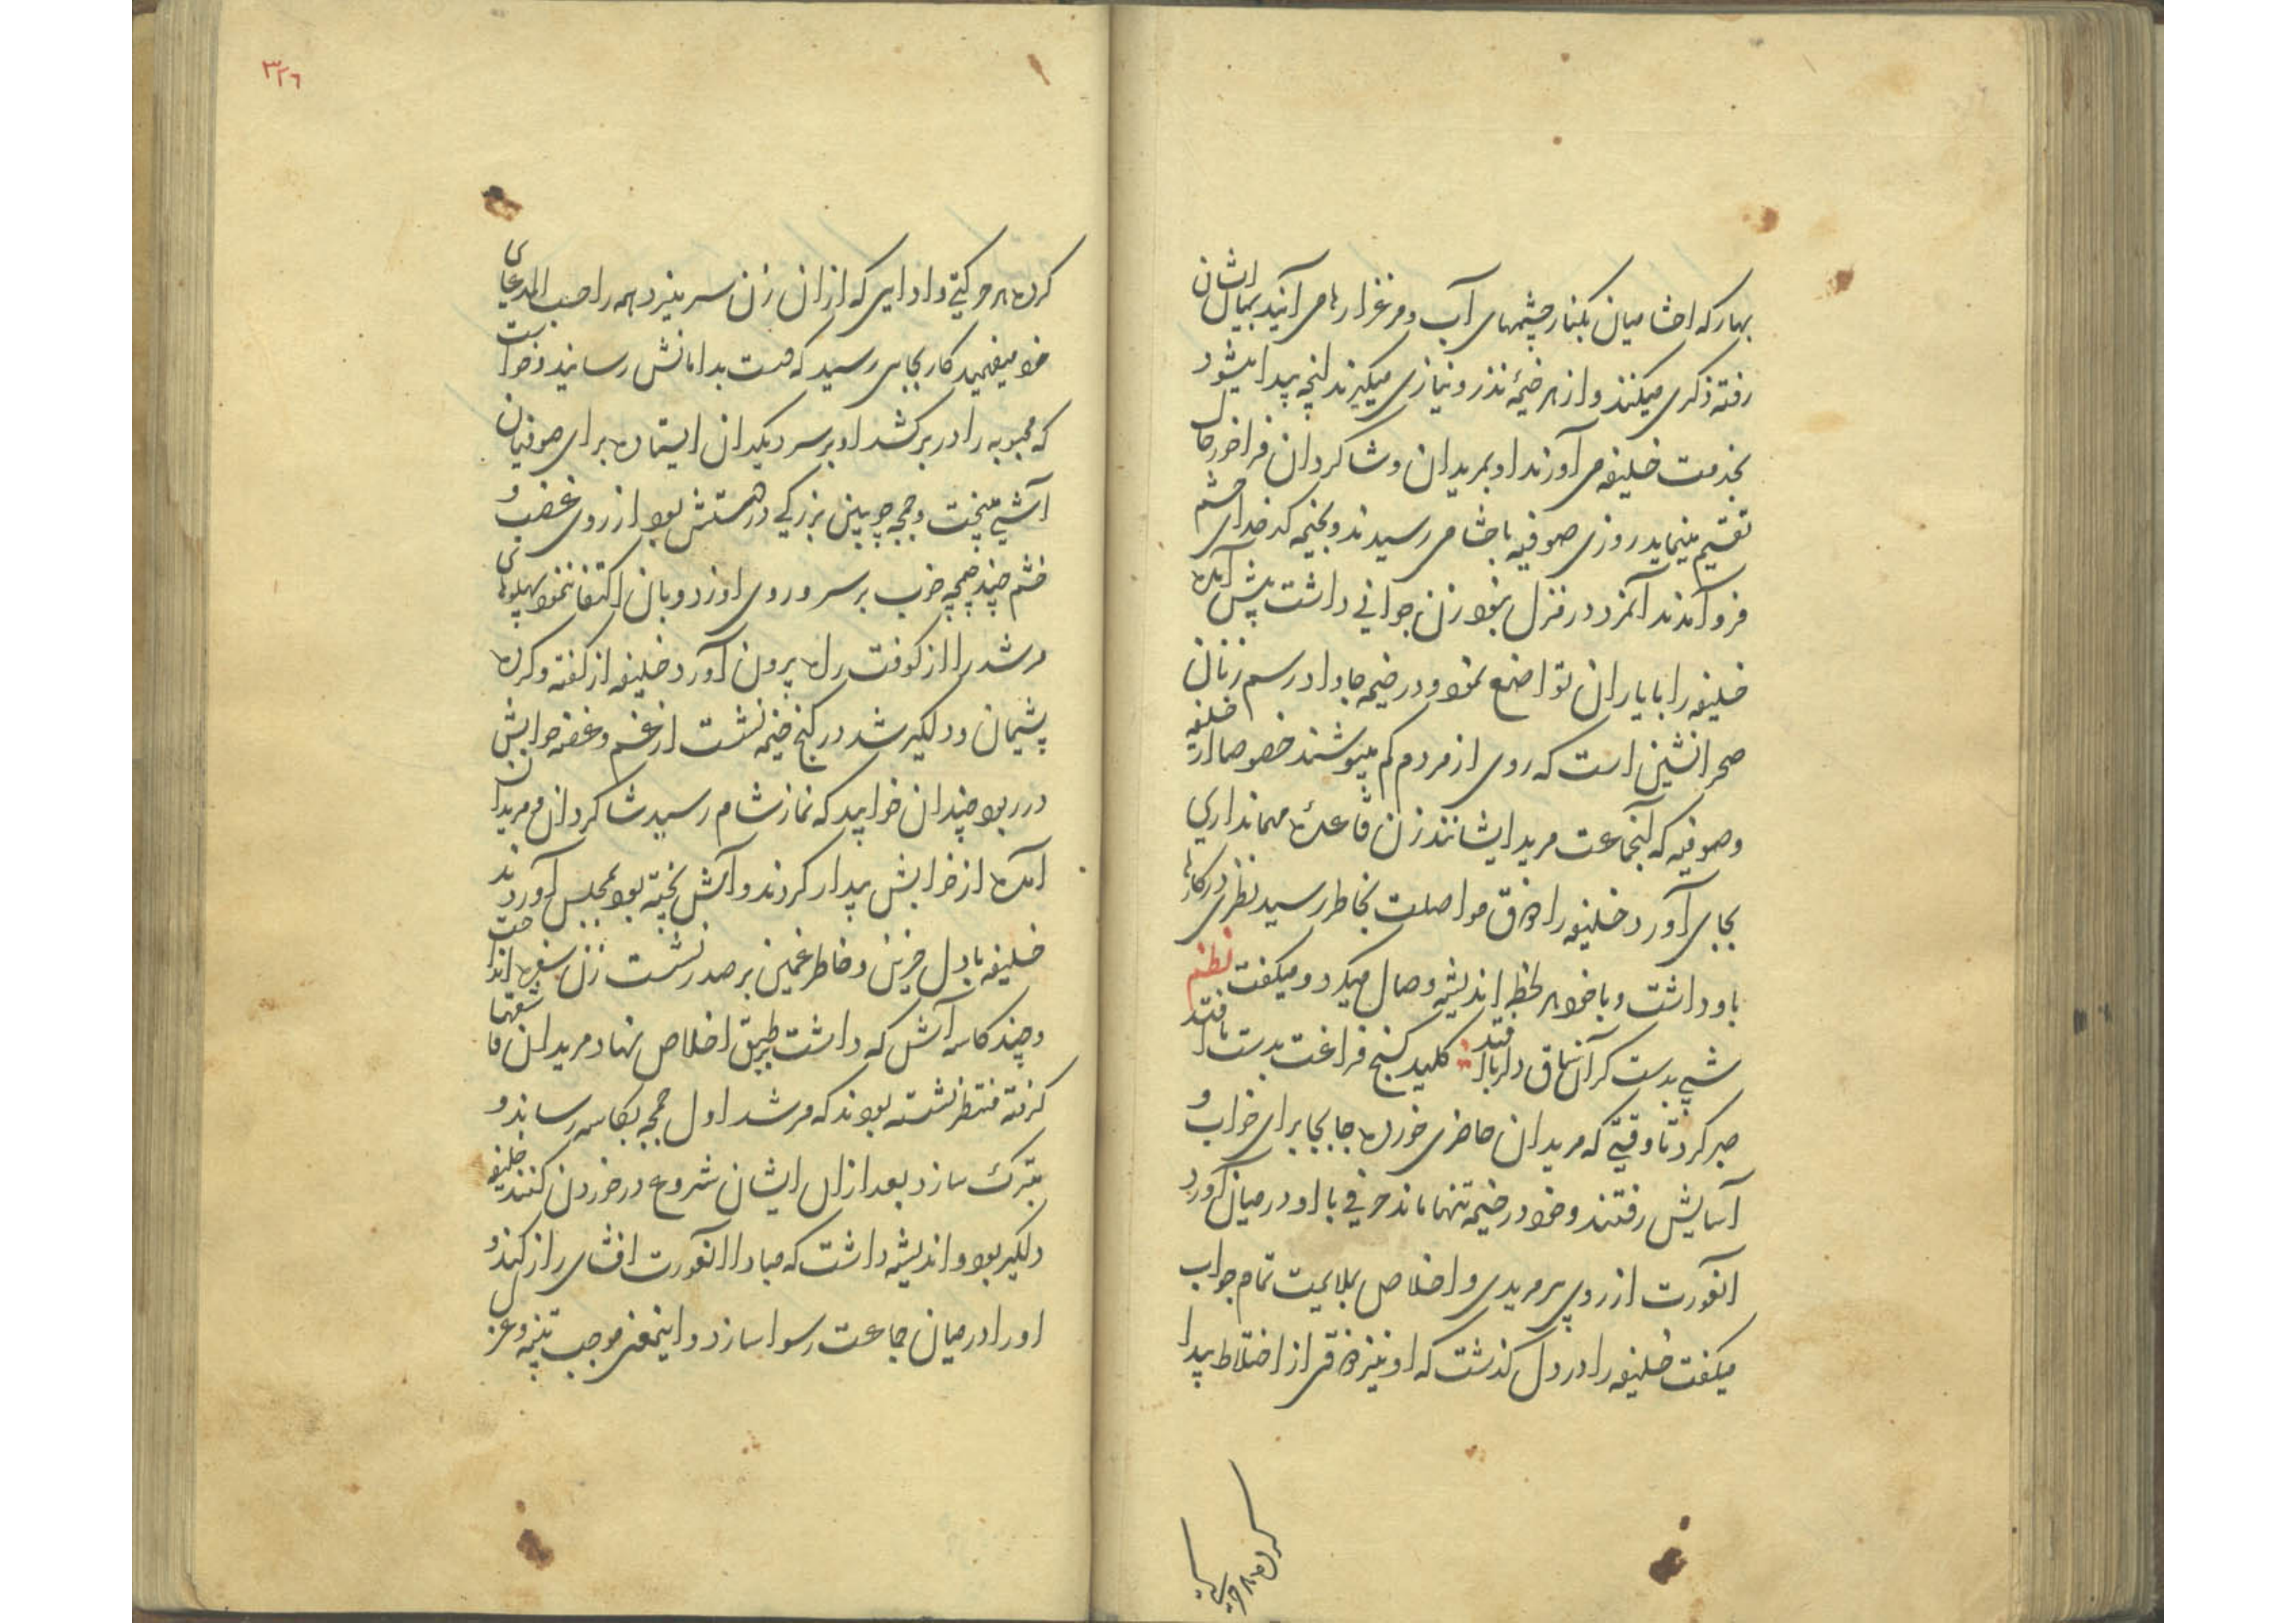 بهار که احشامیان بکنار چشمهای آب و مرغزارها می آیند بمیان ایشان
رفته ذکری میکنند و از هر خیمهٔ نذر و نیازی میگیرند انچه پیدا میشود
بخدمت خلیفه می آورند او بمریدان و شاکردان فراخور حال
تقسیم مینماید روزی صوفیه باحشامی رسیدند و بخیمه کدخدای حشم
فرو آمدند آنمرد در منزل نبود زن جوانی داشت پیش آمده
خلیفه را با یاران تواضع نمود و در خیمه جا داد رسم زنان
صحرانشین است که روی از مردم کم میپوشند خصوصا از خلیفه
و صوفیه که اینجماعت مرید ایشانند زن قاعدهٔ مهمانداری
بجای آورد خلیفه را ذوق مواصلت بخاطر رسید نظری در کارها
باو داشت و با خود هر لحظه اندیشه وصال میکرد و میکفت نظم
شبی بدست کر آن ساق دلربا افتد کلید کنج فراغت بدست ما افتد
صبر کرد تا وقتی که مریدان حاضری خورده جابجا برای خواب و
آسایش رفتند و خود در خیمه تنها ماند حرفی با او در میان آورد
انعورت از روی پر مریدی و اخلاص بملایمت تمام جواب
میکفت خلیفه را در دل کذشت که او نیز ذوقی از اختلاط پیدا
کرده هر حرکتی
٣٢٦
کرده هر حرکتی و ادایی که ازان زن سر میزد همه را حسب المدعای
خود میفهمید کار بجای رسید که دست بدامانش رسانید و خواست
که محبوبه را در بر کشد او بر سر دیکدان ایستاده برای صوفیان
آشی میپخت و چمچه چوبین بزرکی در دستش بود از روی غضب و
خشم چند چمچه خوب بر سر و روی او زد و بان اکتفا ننمود پهلوهای
مرشد را از کوفت راه بیرون آورد خلیفه از کفته و کرده
پشیمان و دلکیر شد در کنج خیمه نشست از غم و غصه خوابش
در ربود چندان خوابید که نماز شام رسید شاکردان و مریدان
آمده از خوابش بیدار کردند و آش پخته بود بمجلس آوردند
خلیفه با دل حزین و خاطر غمین بر صدر نشست زن سفره انداخت
و چند کاسه آش که داشت بر طبق اخلاص نهاد و مریدان قاشقها
کرفته منتظر نشسته بودند که مرشد اول چمچه بکاسه رساند و
تبرک سازد بعد ازان ایشان شروع در خوردن کنند خلیفه
دلکیر بود و اندیشه داشت که مبادا انعورت افشای راز کند و
او را در میان جماعت رسوا سازد و اینمعنی موجب تنبیه و عزل